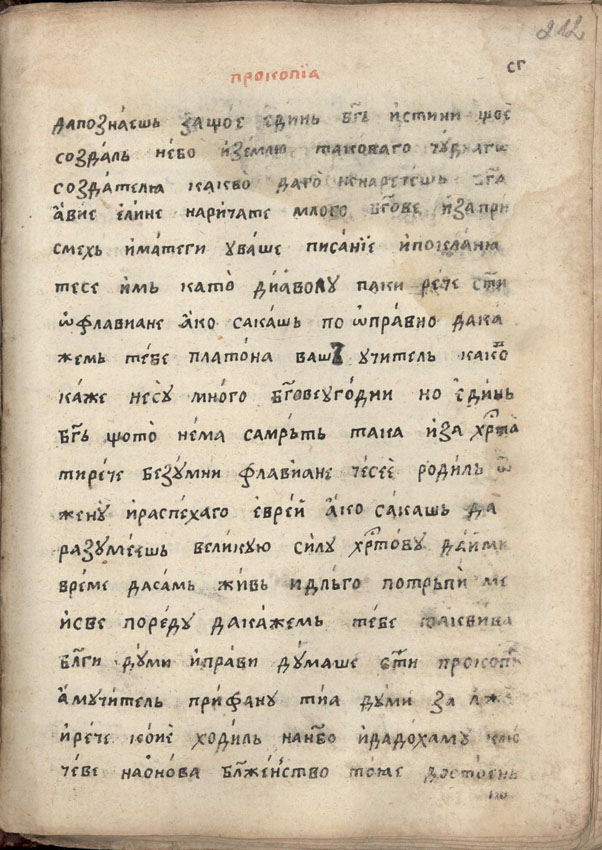 212
сг
прокопїа
дапознаешь защое единь бг҃ь истини щое
создаль небо иземлю таковаго чуднаго
создателя какво даго ненаречешь бг҃а
авие елине наричате млого бг҃ове иза при
смехь имате ги уваше писанїе ипокланя
тесе имь като дїаволу паки рече ст҃и
ѡ флавиане ако сакашь по ѡправно дака
жемь тебе платона вашь учитель како
каже несу много бг҃овеугодни но единь
бг҃ь щото нема самрьть така иза хр҃та
ти рече безумни флавиане чесее родиль ѿ
жену ираспехаго еврей ако сакашь да
разумеешь великую силу хр҃тову дай ми
време дасамь живь идльго потрьпи ме
исве пореду дакажемь тебе таквива
бл҃ги думи иправи думаше ст҃и прокопи
амучитель прифану тиа думи за лже
ирече кое ходиль нанб҃о идадохаму клю
чеве наонова бл҃женство тоже достоень